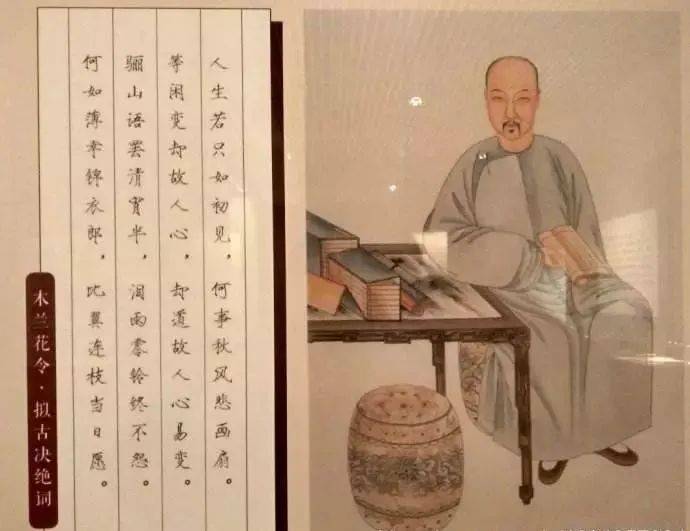 人生若只如初见，何事秋风悲画扇。
等闲变却故人心，却道故人心易变。
骊山语罢清宵半，泪雨零铃终不怨。
何如薄幸锦衣郎，比翼连枝当日愿。
木兰花令·拟古决绝词